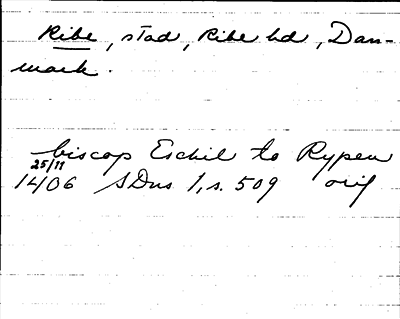 Ribe, stad, Ribe hd, Dan-
mark.
biscop Eschil to Rypen
25/11
1406 SDns 1, s. 509 orig